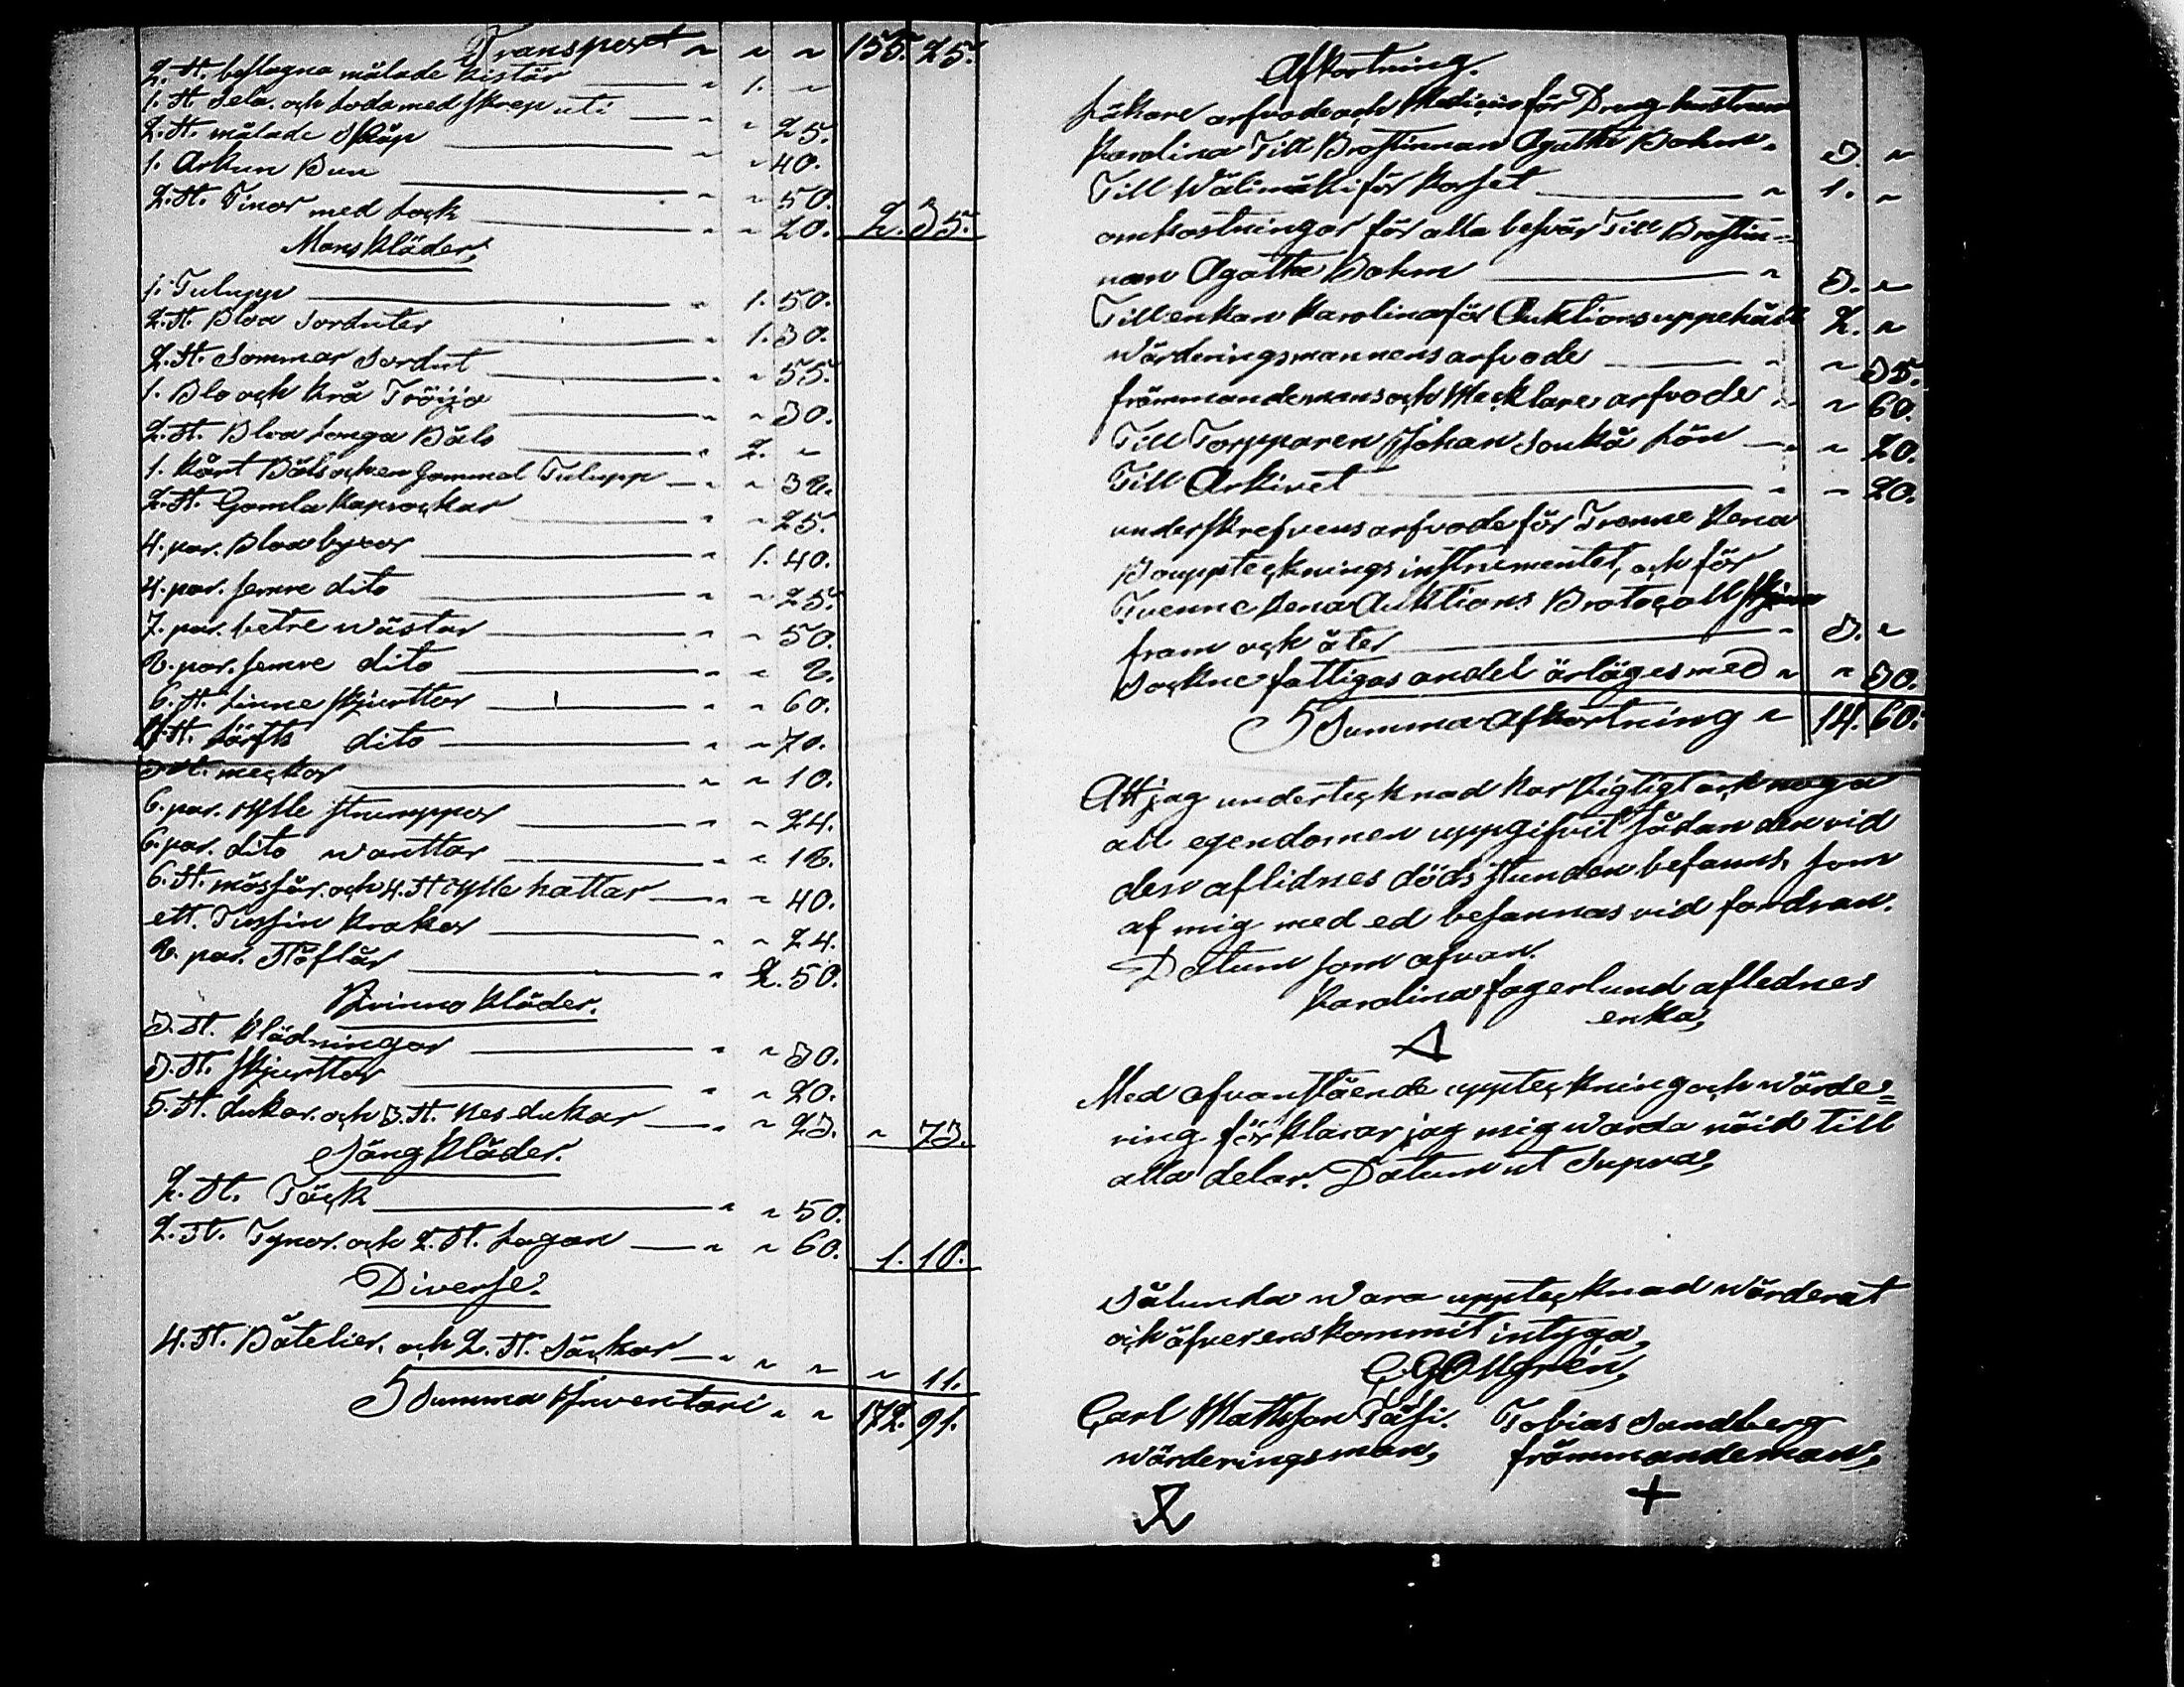 Transport " " " 155. 25.
2. st. beslagna målade kistår " 1. "
1. st. Sela. och Loda med skrep uti " " 25.
2. st. målade Skåp " " 40.
1. Arkun Bun " " 50.
2. st. Tinor med Lock " " 20. 2. 35.
Mans kläder,
1. Tulupp " 1. 50.
2. st. Bloa Sorduter " 1. 30.
2. st. Sommar Sordut " " 55.
1. Blo och Krå Tröija " " 30.
2. st. Bloa Longa Päls " 2. "
1. kårt Päls och en Gammal Tulupp " "
2. st. Gamla kaprockar " " 25.
4. par. Bloa byxor " 1. 40.
4. par. semre dito " " 25.
7. par. betre wästar " " 50.
8. par. semre dito " " 8.
6. st. Linne skjurttor " " 60.
st. Lärfts dito " " 70.
3 st. meckor " " 10.
6. par. ylle strumppor " " 24.
6. par. dito wanttar " " 18.
6. st. mössår. och 4. st ylle hattar " " 40.
ett. Tussin krakor " " 24.
8. par. Stöflår " 2. 50.
Kvinno kläder.
3. st. klädningar " " 30.
3. st. skjurttor " " 20.
5. st. dukar. och 3. st. nes dukar " " 23. " 73.
Säng kläder.
2. st. Täck " " 50.
2. st. Tynor. och 2. st. Lagan " " 60. 1. 10.
Diverse.
4. st. Båtelier. och 2. st. Säckar " " " " 11.
Summa Inventari " " 172. 91.
Afkortning.
Läkare arfvode och Medicin för Dreng
Karolina Till Prostinnan Agatha Bohm. 3. "
Till Wälimäki för korset " 1. "
omkostningar för alla besvär Till Prostin=
nan Agatha Bohm " 3. "
Till enkan Karolina för Auktions uppehåll 2. "
wärderingsmannens arfvode " " 35.
främmandemans och Mecklare arfvode " " 60.
Till Torpparen Johan Soukå Lön " " 20.
Till Arkivet " " 20.
underskrefvens arfvode för Tvenne Rena
Bouppteçknings instrumentet, och för
Tvenne Rena Auktions Protocoll skjuss
fram och åter " 3. "
Sockne fattigas andel ärläges med " " 30.
Summa Afkortning " 14. 60.
Att jag underteçknad har Rigtigt och noga
all egendomen uppgifvit sådan den vid
den aflidnes döds stunden befanns, som
af mig med ed besannas vid fordran.
Datum som ofvan.
Karolina Fagerlund aflednes
enka,
Med ofvanstående uppteçkning och wärde=
ring förklarar jag mig warda nöid till
alla delar. Datum ut Supra,
Sålunda wara uppteçknad wärderat
och öfverenskommit intyga,
Carl Mattsson Päsi. Tobias Sandberg
wärderingsman, främmandeman,
+